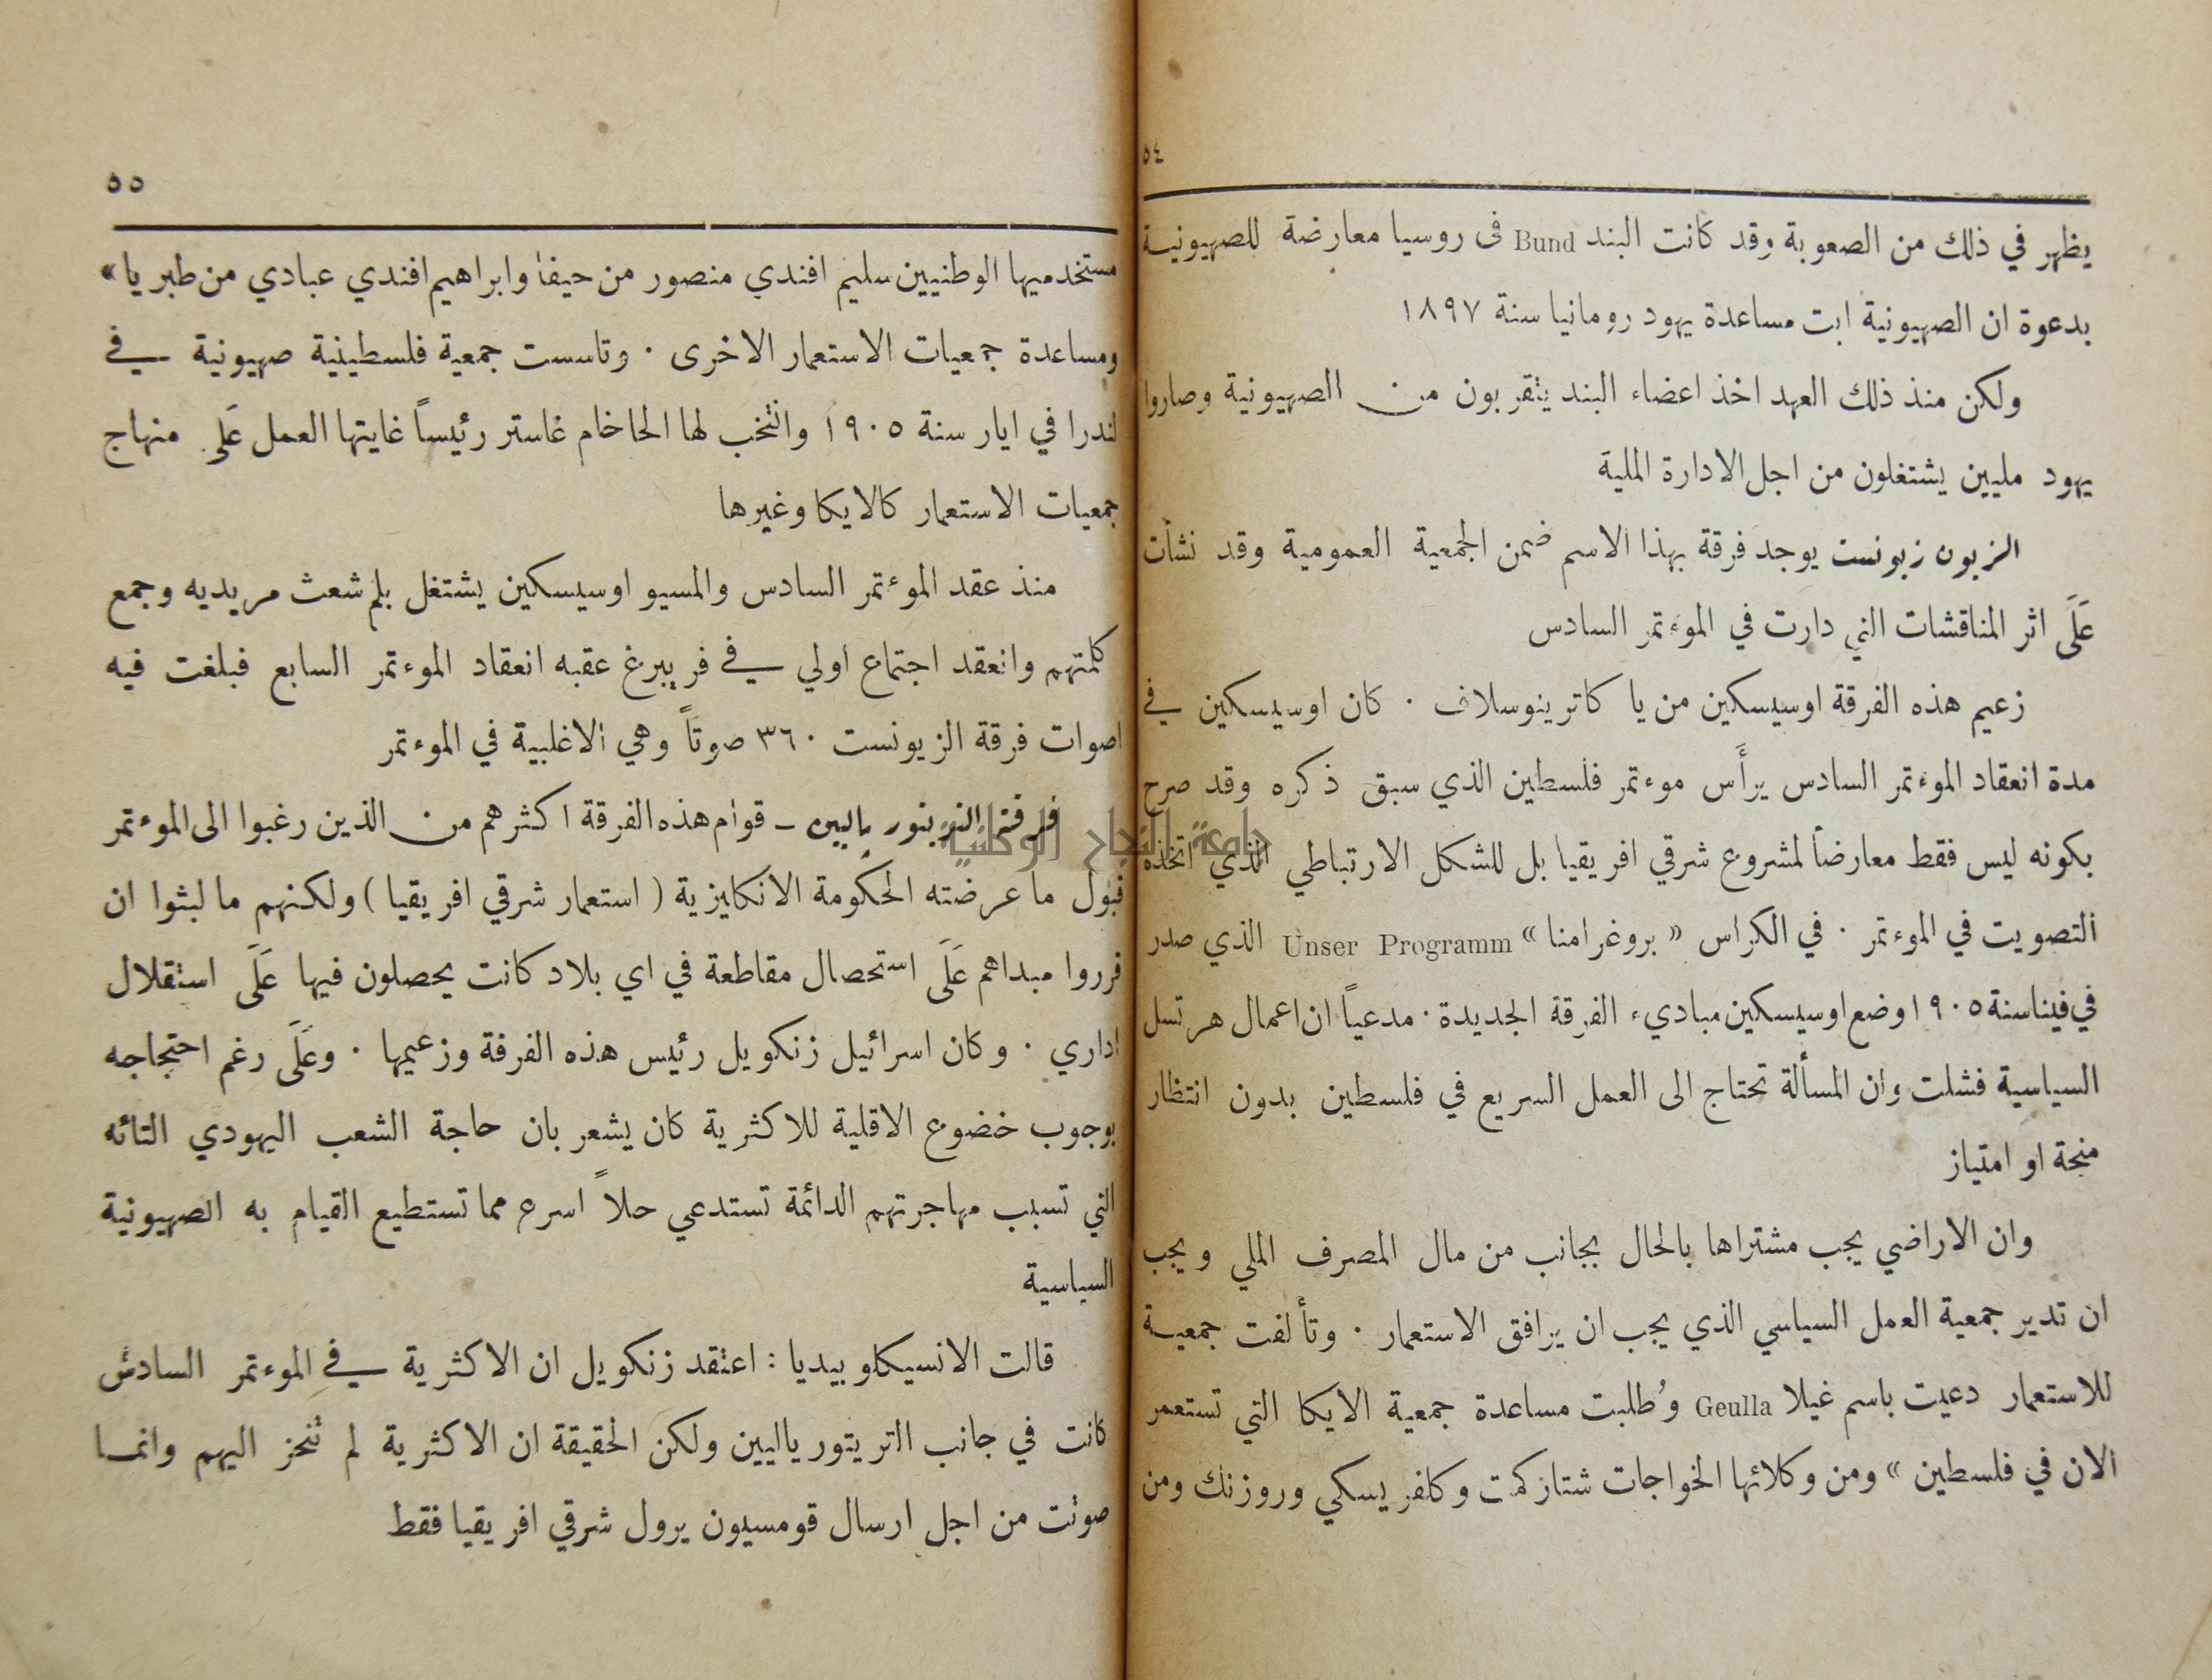 ٥٤
يظهر في ذلك من الصعوبة وقد كانت البند Bund فى روسيا معارضة للصهيونية
بدعوة ان الصهيونية ابت مساعدة يهود رومانيا سنة ١٨٩٧
ولكن منذ ذلك العهد اخذ اعضاء البند يتقربون من الصهيونية وصاروا
يهود مليين يشتغلون من اجل الادارة الملية
الزيون زيونست يوجد فرقة بهذا الاسم ضمن الجمعية العمومية وقد نشأت
عَلَى اثر المناقشات التي دارت في الموءتمر السادس
زعيم هذه الفرقة اوسيسكين من يا كاترينوسلاف ٠ كان اوسيسكين في
مدة انعقاد الموءتمر السادس يرأَس موءتمر فلسطين الذي سبق ذكره وقد صرح
بكونه ليس فقط معارضاً لمشروع شرقي افريقيا بل للشكل الارتباطي الذي اتخذه
التصويت في الموءتمر ٠ في الكراس « بروغرامنا » Unser Programm الذي صدر
في فينا سنة ١٩٠٥ وضع اوسيسكين مباديء الفرقة الجديدة ٠ مدعياً ان اعمال هرتسل
السياسية فشلت وان المسألة تحتاج الى العمل السريع في فلسطين بدون انتظار
منحة او امتياز
وان الاراضي يجب مشتراها بالحال بجانب من مال المصرف الملي ويجب
ان تدير جمعية العمل السياسي الذي يجب ان يرافق الاستعمار ٠ وتألفت جمعية
للاستعمار دعيت باسم غيلا Geulla وُطلبت مساعدة جمعية الايكا التي تستعمر
الان في فلسطين » ومن وكلائها الخواجات شتازكمت وكلفريسكي وروزنك ومن
٥٥
مستخدميها الوطنيين سليم افندي منصور من حيفا وابراهيم افندي عبادي من طبريا »
ومساعدة جمعيات الاستعمار الاخرى ٠ وتاسست جمعية فلسطينية صهيونية في
لندرا في ايار سنة ١٩٠٥ وانتخب لها الحاخام غاستر رئيساً غايتها العمل عَلَى منهاج
جمعيات الاستعمار كالايكا وغيرها
منذ عقد الموءتمر السادس والمسيو اوسيسكين يشتغل بلم شعث مريديه وجمع
كلمتهم وانعقد اجتماع اولي في فريبرغ عقبه انعقاد الموءتمر السابع فبلغت فيه
اصوات فرقة الزيونست ٣٦٠ صوتاً وهي الاغلبية في الموءتمر
فرقة التريتور ياليين — قوام هذه الفرقة اكثرهم من الذين رغبوا الى الموءتمر
قبول ما عرضته الحكومة الانكليزية ( استعمار شرقي افريقيا ) ولكنهم ما لبثوا ان
قرروا مبداهم عَلَى استحصال مقاطعة في اي بلاد كانت يحصلون فيها عَلَى استقلال
اداري ٠ وكان اسرائيل زنكويل رئيس هذه الفرقة وزعيمها ٠ وعَلَى رغم احتجاجه
بوجوب خضوع الاقلية للاكثرية كان يشعر بان حاجة الشعب اليهودي التائه
التي تسبب مهاجرتهم الدائمة تستدعي حلاً اسرع مما تستطيع القيام به الصهيونية
السياسية
قالت الانسيكلوبيديا : اعتقد زنكويل ان الاكثرية في الموءتمر السادس
كانت في جانب التريتورياليين ولكن الحقيقة ان الاكثرية لم تنحز اليهم وانما
صوتت من اجل ارسال قومسيون يرول شرقي افريقيا فقط
جامعة النجاح الوطنية